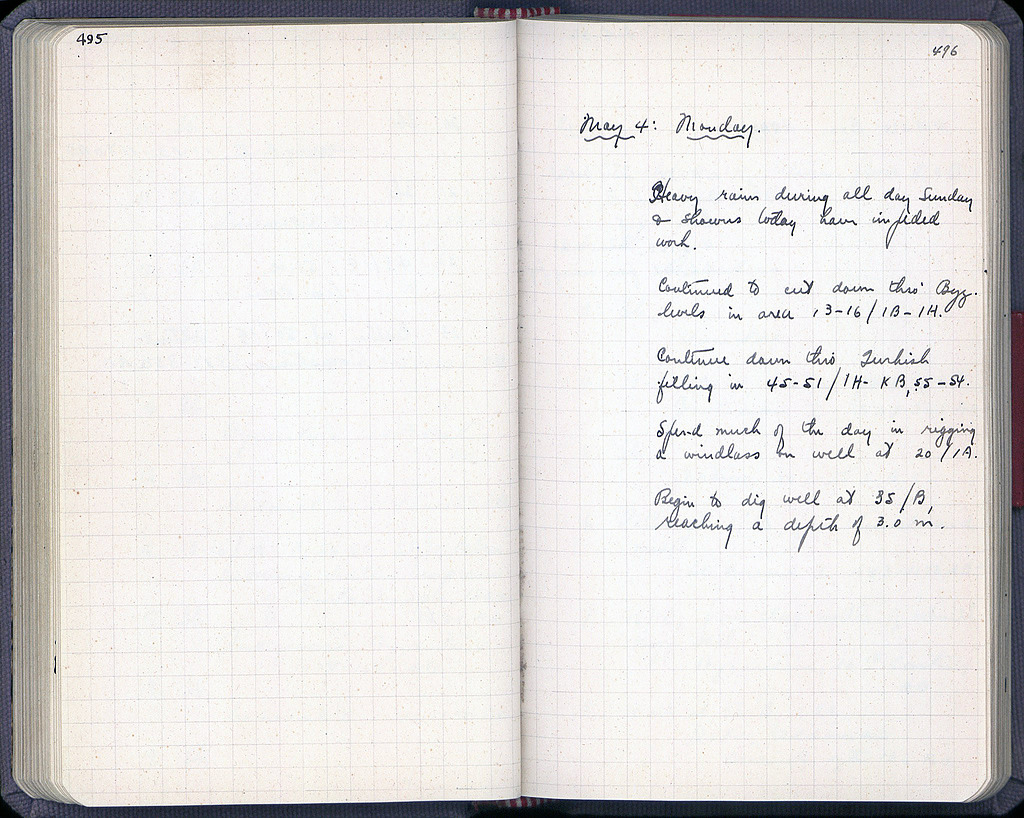 495
496
May 4: Monday.
Heavy rains during all day Sunday
& showers today have impeded
work.
Continued to cut down thro' Byz.
levels in area 13-16/1B-1H.
Continue down thro Turkish
filling in 45-51/1H- KB, 55-54.
Spend much of the day in rigging
a windlass on well at 20/1A.
Begin to dig well at 35/B,
reaching a depth of 3.0 m.